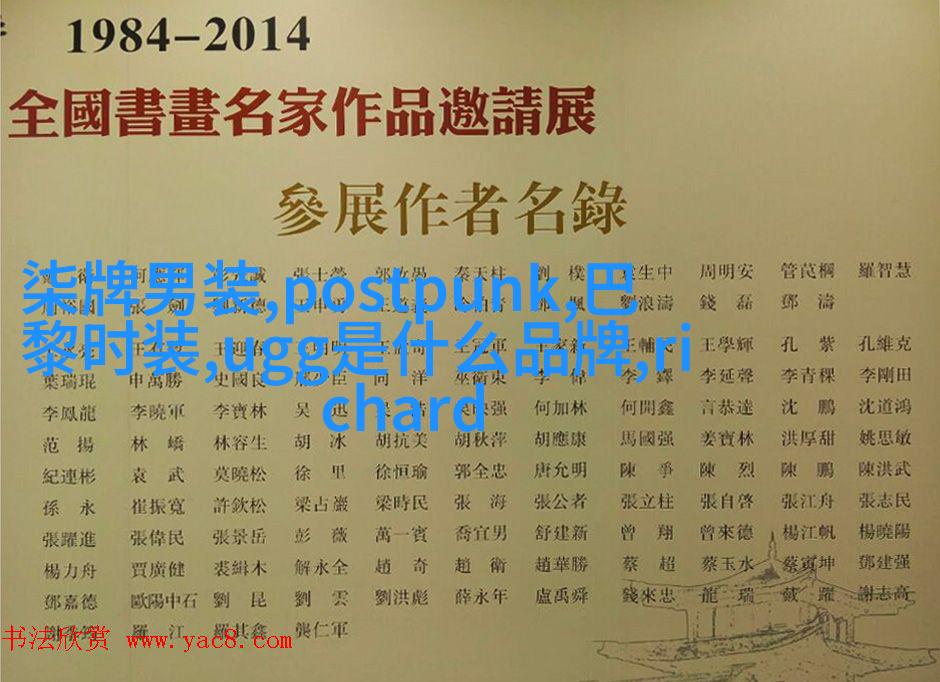 1984-2014
全國書畫名家作品邀請展
參展作者名錄
張士瑩 秦天柱 劉樸 周明安 管苠棡 羅智慧
柒牌男装,postpunk,巴
劉浪濤 錢磊 鄧濤
黎时装,ugg是什么品牌,ri
王學輝 孔紫 孔維克
葉瑞琨 申萬勝 史國良 向洋 巫衛東 李偉 李鐸 李延聲 李青稞 李剛田
chard
李鳳龍 李曉軍 李寶林 吳迅 何加林 何開鑫 言恭達 沈鵬 沈道鴻
范揚 林嶠 林容生 胡冰 胡抗美 胡秋萍 胡應康 馬國强 姜寶林 洪厚甜 姚思敏
紀連彬 袁武 莫曉松 徐里 徐恒瑜 郭全忠 唐允明 陳爭 陳烈 陳鵬 陳洪武
孫永 崔振寬 許欽松 梁占巖 梁時民 張海 張公者 張立柱 張自啓 張江舟 張志民
張躍進 張偉民 張景岳 彭薇 萬一賓 喬宜男 舒建新 曾翔 曾來德 楊江帆 楊曉陽
楊力舟 賈廣健 裘緝木 解永全 趙奇 趙衛 趙華勝 蔡超 蔡玉水 蔡寅坤 鄧建强
鄧嘉德 歐陽中石 劉昆 劉雲 劉洪彪 薛永年 盧禹舜 錢來忠 龍瑞 戴躍 謝志高
羅江 羅其鑫 龔仁軍
书法欣赏 www.yac8.com